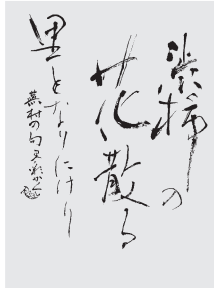 渋柿の
花散る
里となりにけり
蕪村の句